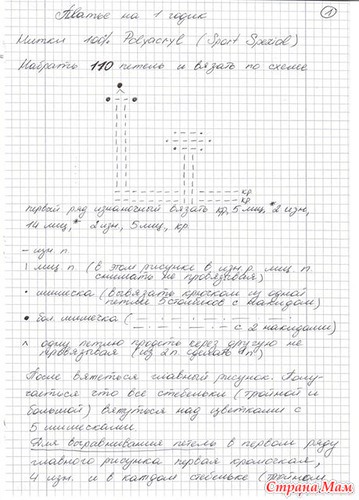 Платье на 1 годик
1
Нитки 100% Polyacryl (Sport Spezial)
Набрать 110 петель и вязать по схеме
кр
кр
первый ряд изнаночный вязать кр, 5 лиц, * 2 изн,
14 лиц, * 2 изн, 5 лиц, кр
– изн п
I лиц п (в этом рисунке в изн р лиц. п
снимать не провязывая)
• шишечка (ввязать крючком из одной
петельки 5 столбиков с накидом)
• бол шишечка ( — · — · — · —
— · — · — · — с 2 накидами)
^ одну петлю продеть через другую не
провязывая (из 2 п. сделать 1 п)
После вяжеться главный рисунок. Полу-
чается что все стебельки (тройной и
большой) вяжуться над цветками с
5 шишечками.
Для выравнивания петель в первом ряду
главного рисунка первая кромочная,
4 изн. и в каждом стебельке (тройном
Страна Мам